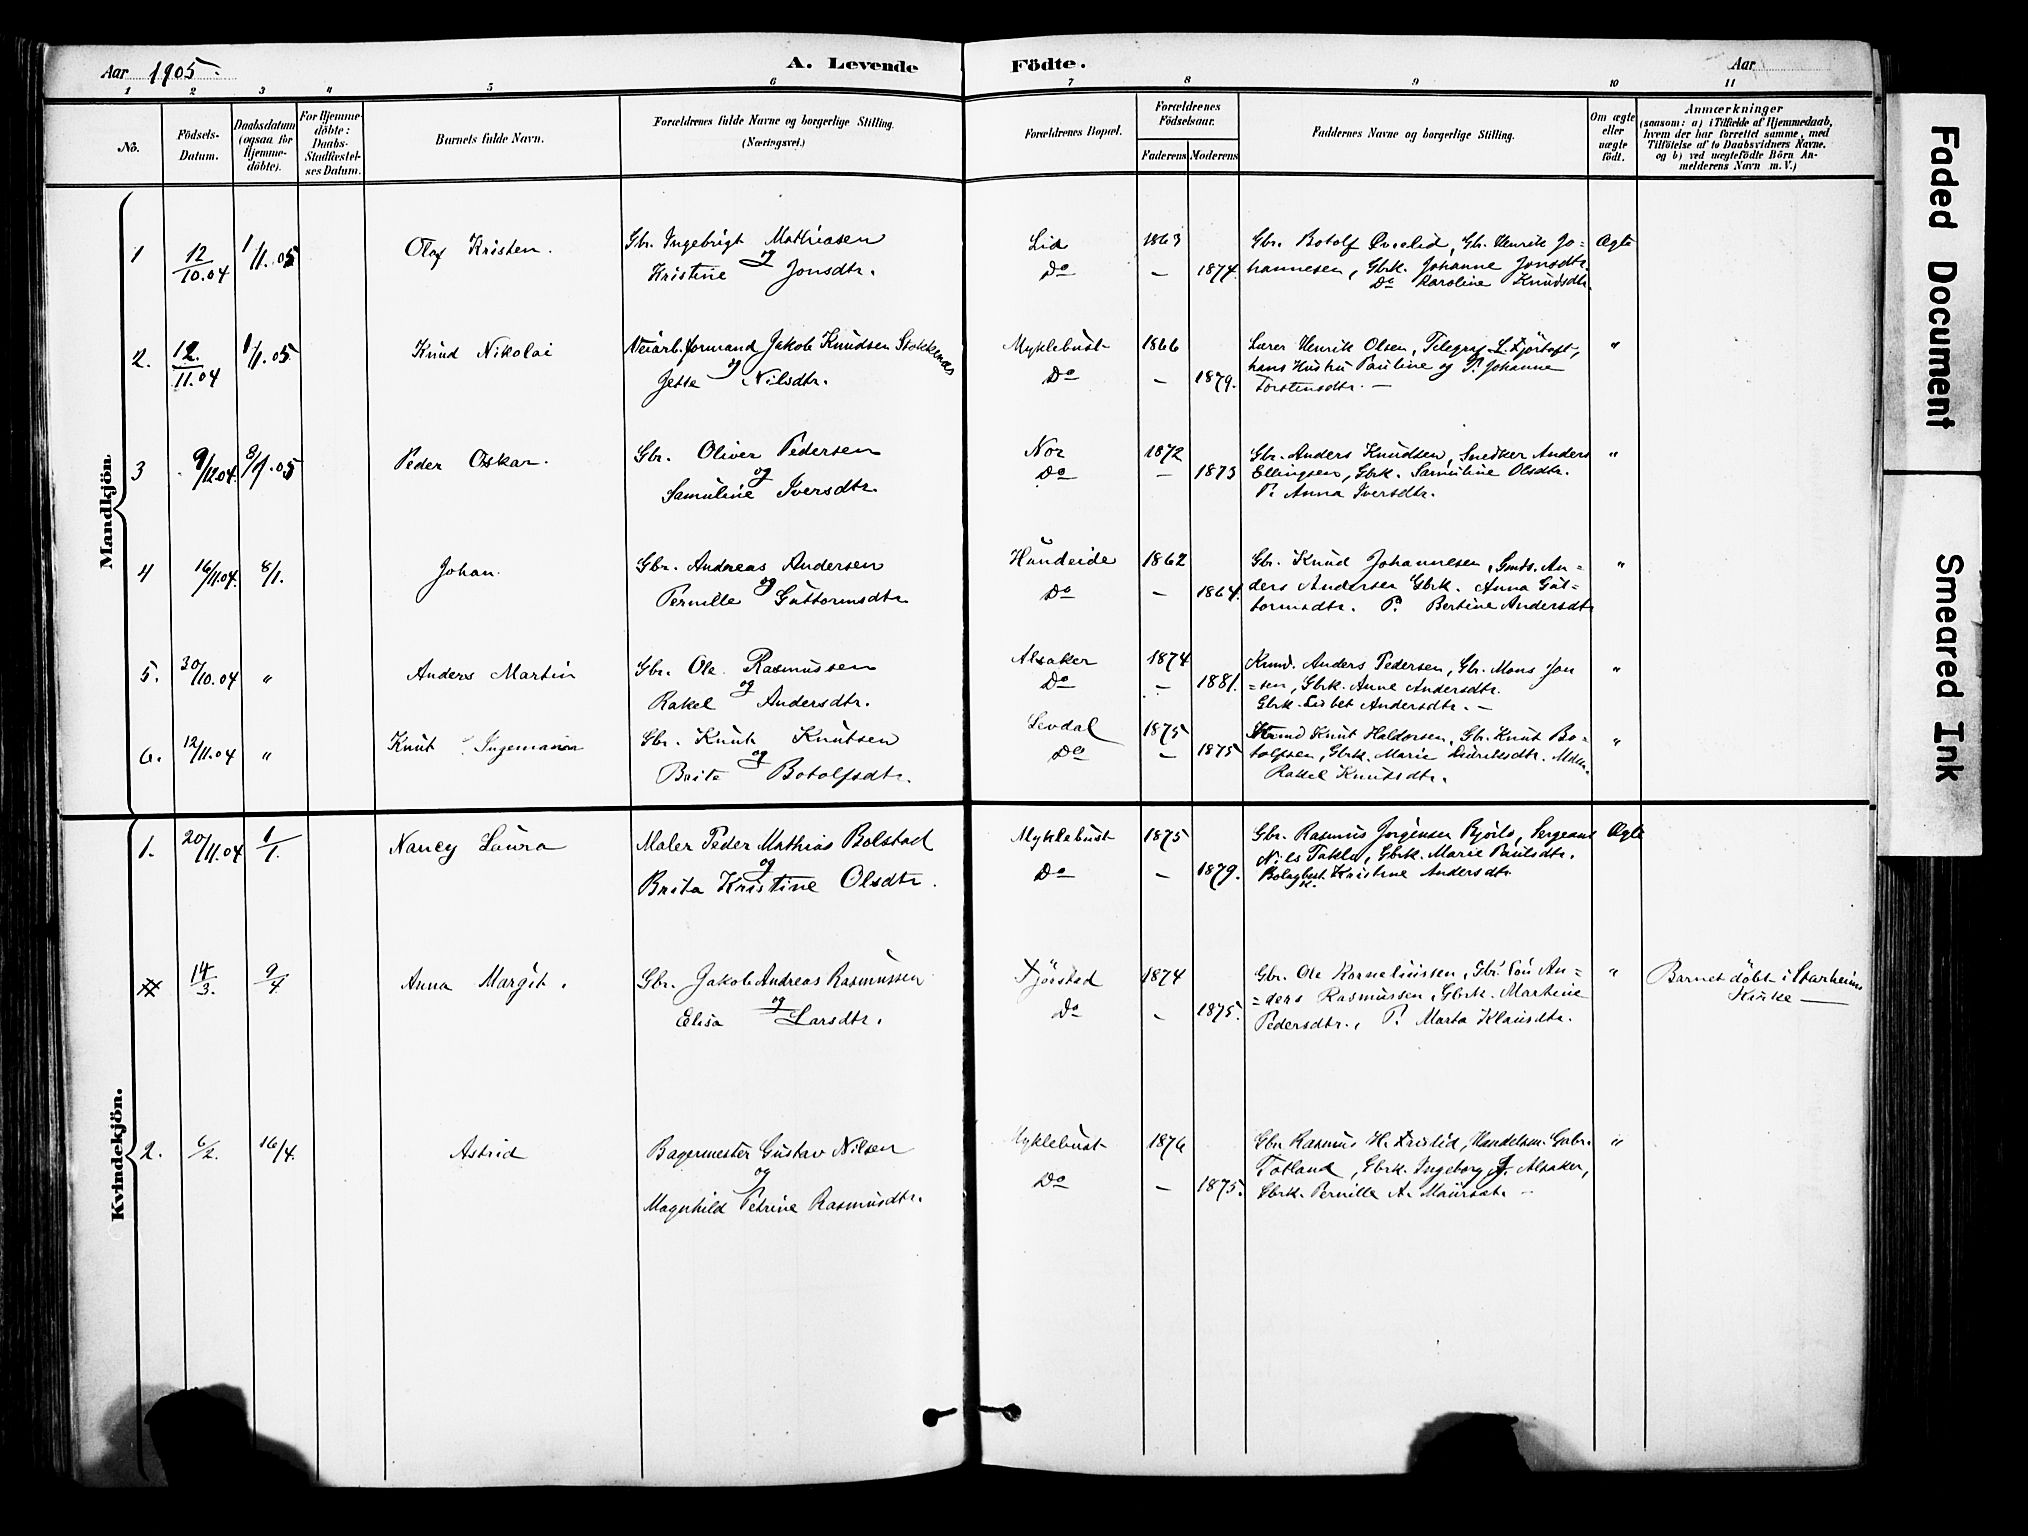 Aar 1905.
A. Levende Födte.
Aar
1 2 3 4 5 6 7 8 9 10 11
No.
Födsels-Datum.
Daabsdatum (ogsaa for Hjemme-döbte).
For Hjemme-döbte: Daabs-Stadfæstel-ses Datum.
Barnets fulde Navn.
Forældrenes fulde Navne og borgerlige Stilling.
(Næringsvei.)
Forældrenes Bopæl.
Forældrenes Födselsaar.
Faderens Moderens
Faddernes Navne og borgerlige Stilling.
Om ægte eller uægte födt.
Anmærkninger
(saasom: a) i Tilfælde af Hjemmedaab, hvem der har forrettet samme, med Tilföielse af to Daabsvidners Navne. og b) ved uægtefödte Börn An-melderens Navn m. V.)
Mandkjön.
1 12/10.04 1/1.05 Olaf Kristen. Gbr. Ingebrigt Mathiasen Lid 1863 Gbr. Botolf Øvrelid, Gbr. Henrik Jo= Ægte
og
Kristine Jonsdtr. Do — 1874. hannesen, Gbrk. Johanne Jonsdtr.
Do Karoline Knudsdtr.
2. 12/11.04 1/1.05 Knud Nikolai Veiarb.formand Jakob Knudsen Stokkenæs Myklebust 1866 Lærer Henrik Olsen, Telegraf L. Fjörtoft, "
og
Jette Nilsdtr. Do — 1879. hans Hustru Pauline og P. Johanne
Torstensdtr. —
3 9/12.04 8/1.05 Peder Oskar. Gbr. Oliver Pedersen Nor 1872 Gbr. Anders Knudsen, Snedker Anders "
og
Samuline Iversdtr. Do — 1873 Ellingsen, Gbrk. Samuline Olsdtr.
P. Anna Iversdtr.
4 16/11.04. 8/1. Johan. Gbr. Andreas Andersen Hundeide 1862 Gbr. Knud Johannesen, Gmd. An= "
og
Pernille Guttormsdtr Do — 1864. ders Andersen Gbrk. Anna Gut=
tormsdtr. P. Bertine Andersdtr
5. 30/10.04 " Anders Martin Gbr. Ole Rasmussen Alsaker 1874 Anders Pedersen, Gbr. Mons Jon "
og
Rakel Andersdtr. Do — 1881. =sen, Gbrk. Anne Andersdtr.
Gbrk. Lisbet Andersdtr. —
6. 12/11.04 " Knut Ingemann Gbr. Knut Knutsen Levdal 1875 Knut Haldorsen, Gbr. Knut Bo= "
og
Brite Botolfsdtr. Do — 1875 tolfsen, Gbrk. Marie Didriksdtr.
Rakel Knutsdtr.
Kvindekjön.
1. 20/11.04 1/1. Nancy Laura Maler Peder Mathias Bolstad Myklebust 1875 Gbr. Rasmus Jørgensen Bjørlo, Sergeant Ægte
og
Brita Kristine Olsdtr. Do — 1879. Nils Takle, Gbrk. Marie Paulsdtr.
Kristine Andersdtr.
14/3. 9/4 Anna Margit. Gbr. Jakob Andreas Rasmussen Fjørstad 1874 Gbr. Ole Korneliussen, Gbr. Søn An= " Barnet döbt i Starheims
og
Elisa Larsdtr. Do — 1875. =ders Rasmussen, Gbrk. Martine Kirke —
Pedersdtr., P. Marta Klausdtr.
2. 6/2. 16/4. Astrid Bagermester Gustav Nilsen Myklebust 1876 Gbr. Rasmus H. Evelid, Handelsm. Gabr. "
og
Magnhild Petrine Rasmusdtr. Do — 1875. Totland, Gbrk. Ingeborg J. Alsaker,
Gbrk. Pernille A. Maurset. —
Faded Document
Smeared Ink